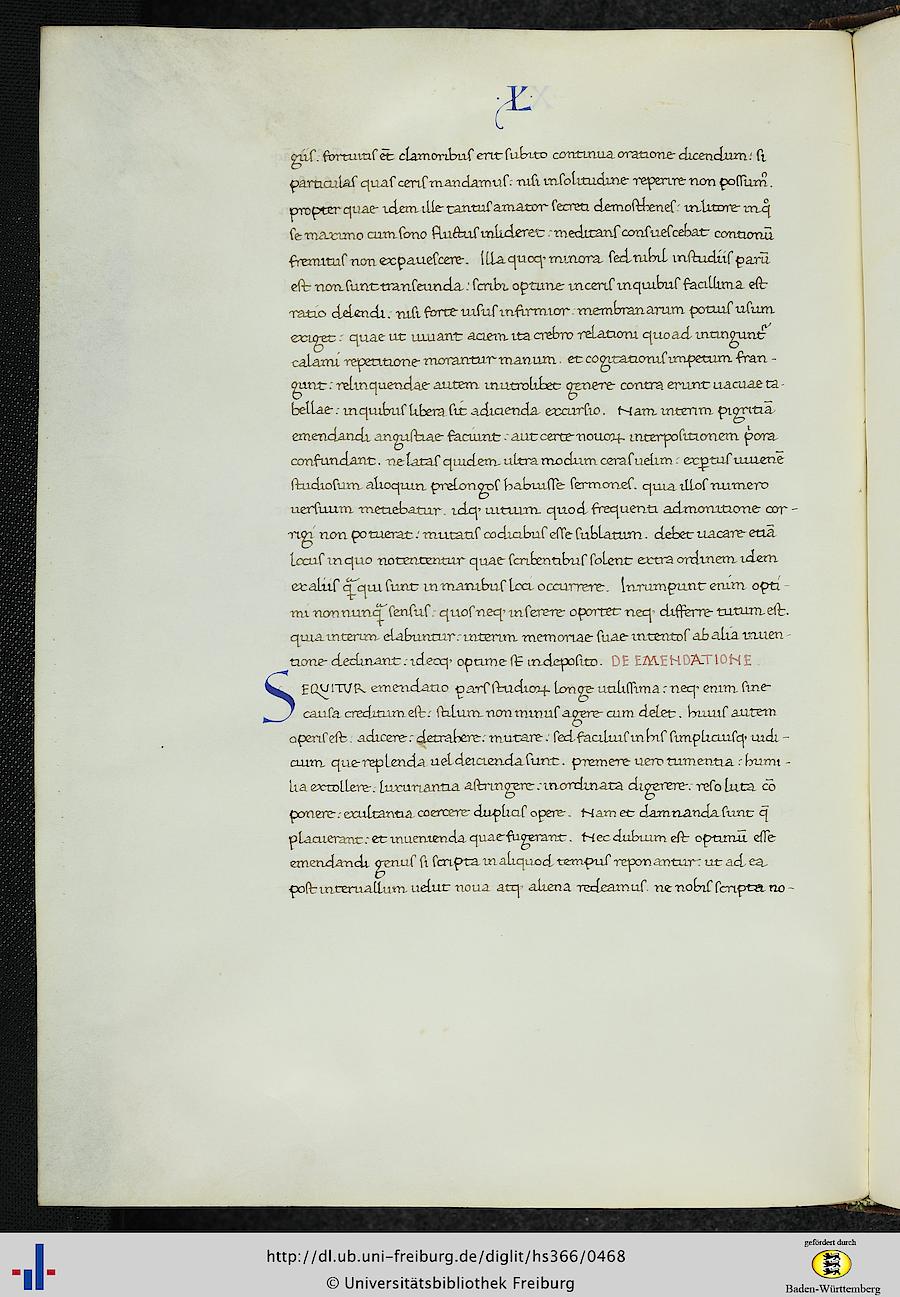 ·L·
giis. fortuitis et̄ clamoribus erit subito continua oratione dicendum: si
particulas quas ceris mandamus: nisi in solitudine reperire non possum̉.
propter quae idem ille tantus amator secreti demosthenes: in litore in q̊
se maximo cum sono fluctus inlideret: meditans consuescebat contionū
fremitus non expauescere. Illa quoq; minora sed nihil in studiis parū
est non sunt transeunda: scribi optime in ceris in quibus facillima est
ratio delendi: nisi forte uisus infirmior: membranarum potius usum
exiget: quae ut iuuant aciem ita crebro relationi quoad intingunt᷑
calami repetitione morantur manum. et cogitationis impetum fran-
gunt: relinquendae autem in utrolibet genere contra erunt uacuae ta-
bellae: in quibus libera sit adicienda excursio. Nam interim pigritiā
emendandi angustiae faciunt: aut certe nouoꝝ interpositionem p̉ora
confundant. ne latas quidem ultra modum ceras uelim: exꝑtus iuuenē
studiosum alioquin prelongos habuisse sermones. quia illos numero
uersuum metiebatur. idq; uitium quod frequenti admonitione cor-
rigi non potuerat: mutatis codicibus esse sublatum. debet uacare etiā
locus in quo notententur quae scribentibus solent extra ordinem idem
ex aliis q̄ᵃ qui sunt in manibus loci occurrere. Inrumpunt enim opti-
mi nonnunq̄ᵃ sensus: quos neq; inserere oportet neq; differre tutum est.
quia interim elabuntur: interim memoriae suae intentos ab alia inuen-
tione declinant: ideoq; optime st̄ in deposito. DE EMENDATIONE
SEQUITUR emendatio pars studioꝝ longe utilissima: neq; enim sine
causa creditum est: stilum non minus agere cum delet. huius autem
operis est: adicere: detrahere: mutare: sed facilius in his simpliciusq; iudi-
cium que replenda uel deicienda sunt. premere uero tumentia: humi-
lia extollere: luxuriantia astringere: inordinata digerere: resoluta cō
ponere: exultantia coercere duplicis opere. Nam et damnanda sunt q̄
placuerant: et inuenienda quae fugerant. Nec dubium est optimū esse
emendandi genus si scripta in aliquod tempus reponantur: ut ad ea
post interuallum uelut noua atq; aliena redeamus. ne nobis scripta no-
http://dl.ub.uni-freiburg.de/diglit/hs366/0468
© Universitätsbibliothek Freiburg
gefördert durch
Baden-Württemberg